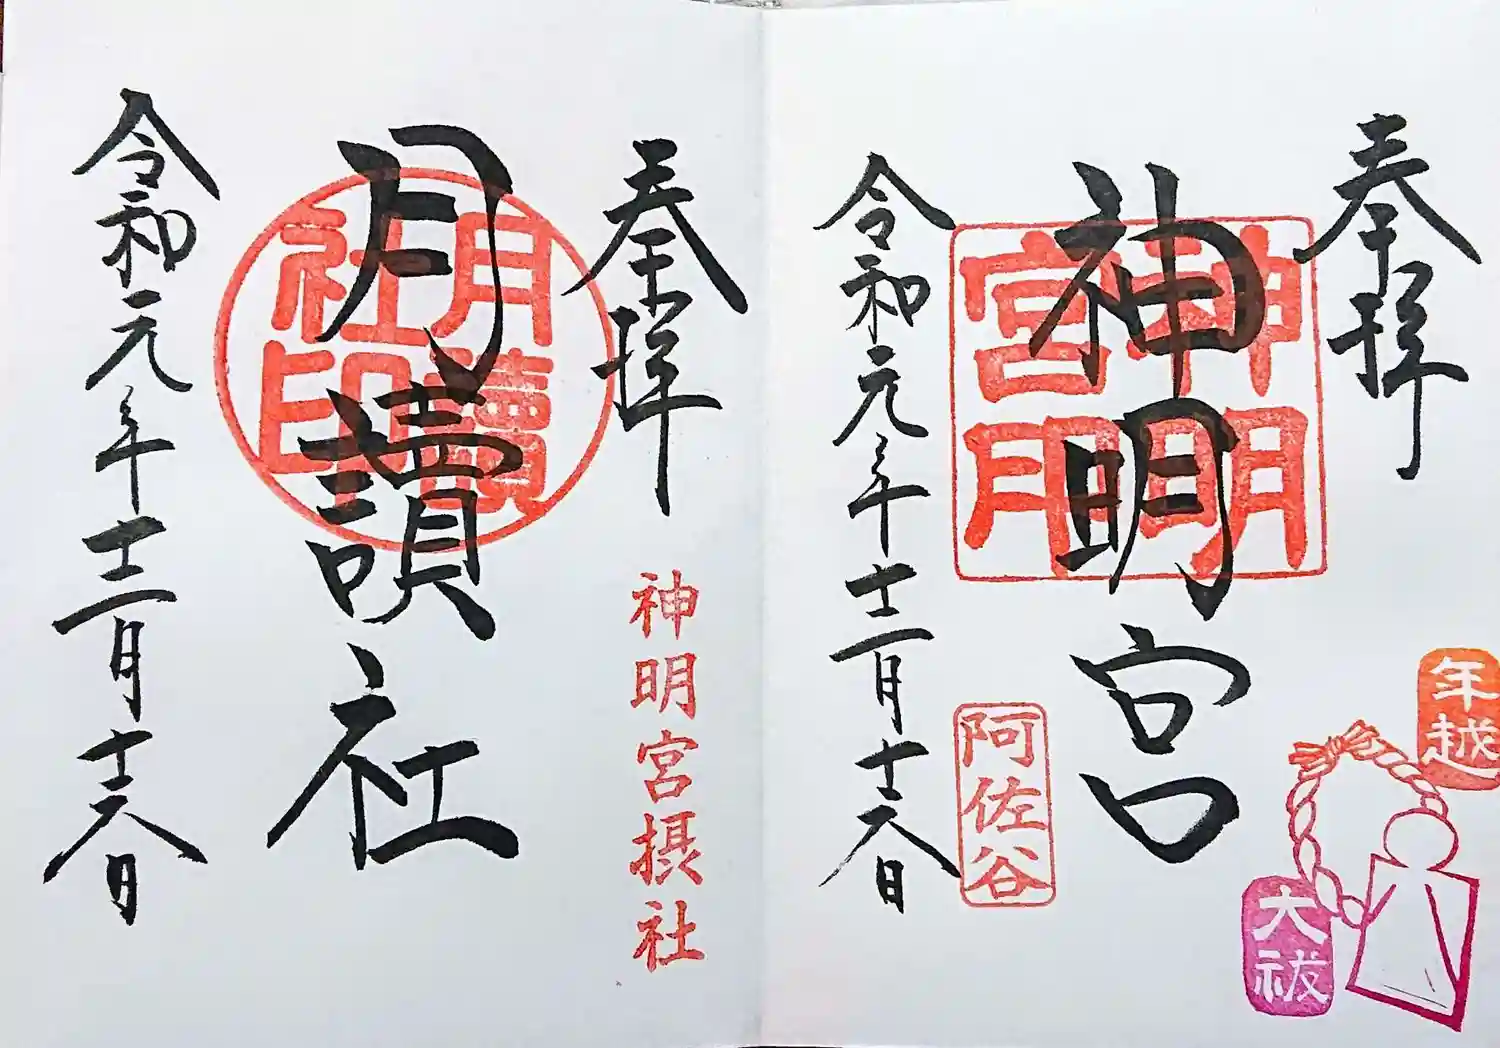 奉拝
神明宮
神明宮
令和元年十二月十六日
阿佐谷
年越
大祓
奉拝
神明宮摂社
月讀社
月讀社印
令和元年十二月十六日